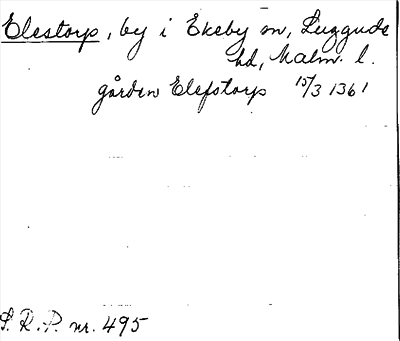 Elestorp, by i Ekeby sn, Luggude
hd, Malm. l.
gården Elefstorp 15/3 1361
S. R. P. nr. 495